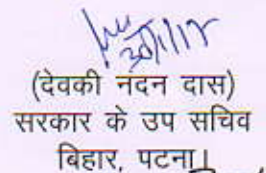 30/1/12
(देवकी नंदन दास)
सरकार के उप सचिव
बिहार, पटना।